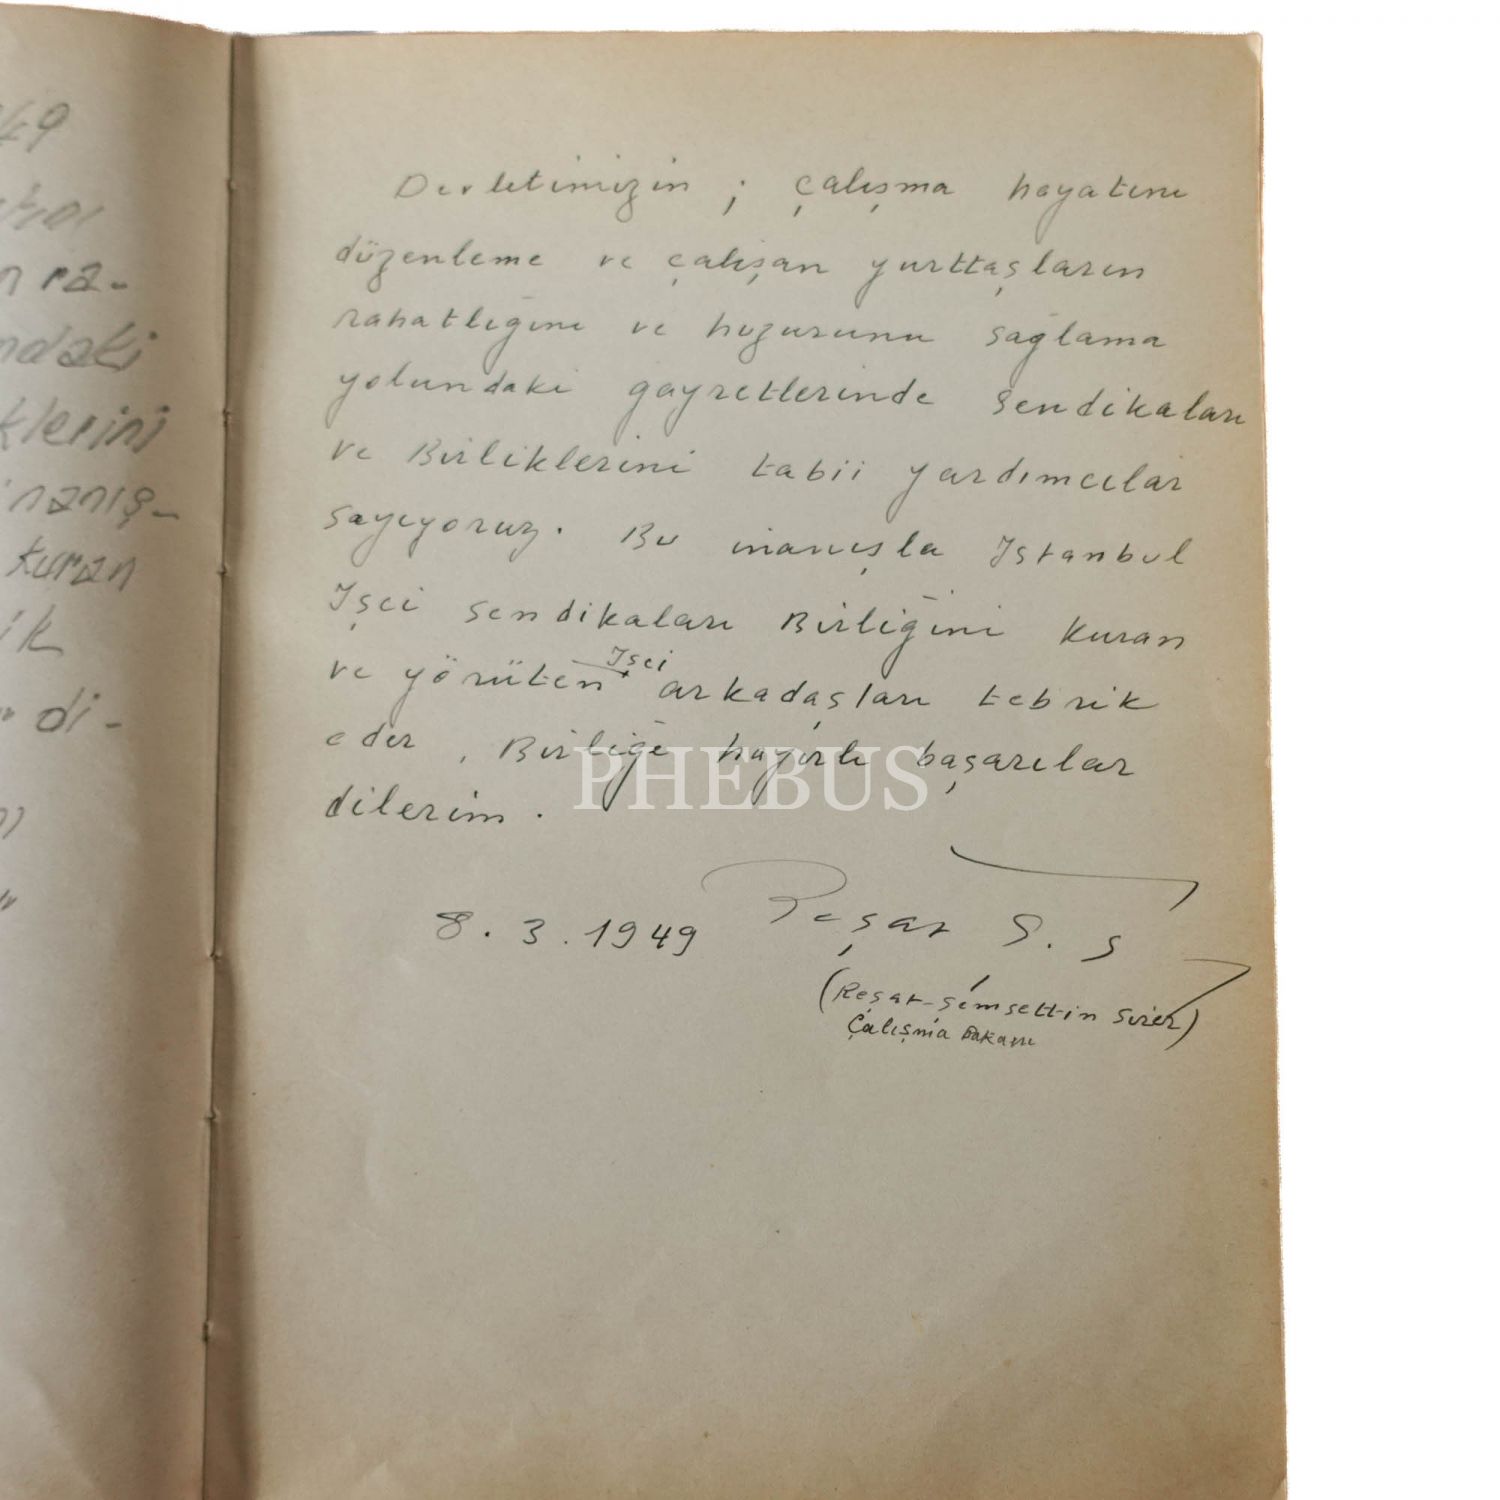 49
n ra-
ndaki
klerini
inanış-
kuran
ik
di-
Devletimizin ; çalışma hayatını
düzenleme ve çalışan yurttaşların
rahatlığını ve huzurunu sağlama
yolundaki gayretlerinde Sendikaları
ve Birliklerini tabii yardımcılar
sayıyoruz. Bu inanışla Istanbul
Işçi Sendikaları Birliğini kuran
ve yörüten Işçi arkadaşları tebrik
eder , Birliğe hayırlı başarılar
dilerim .
PHEBUS
8.3.1949 Reşat S. S
(Reşat-Şemsettin Sirer)
Çalışma Bakanı